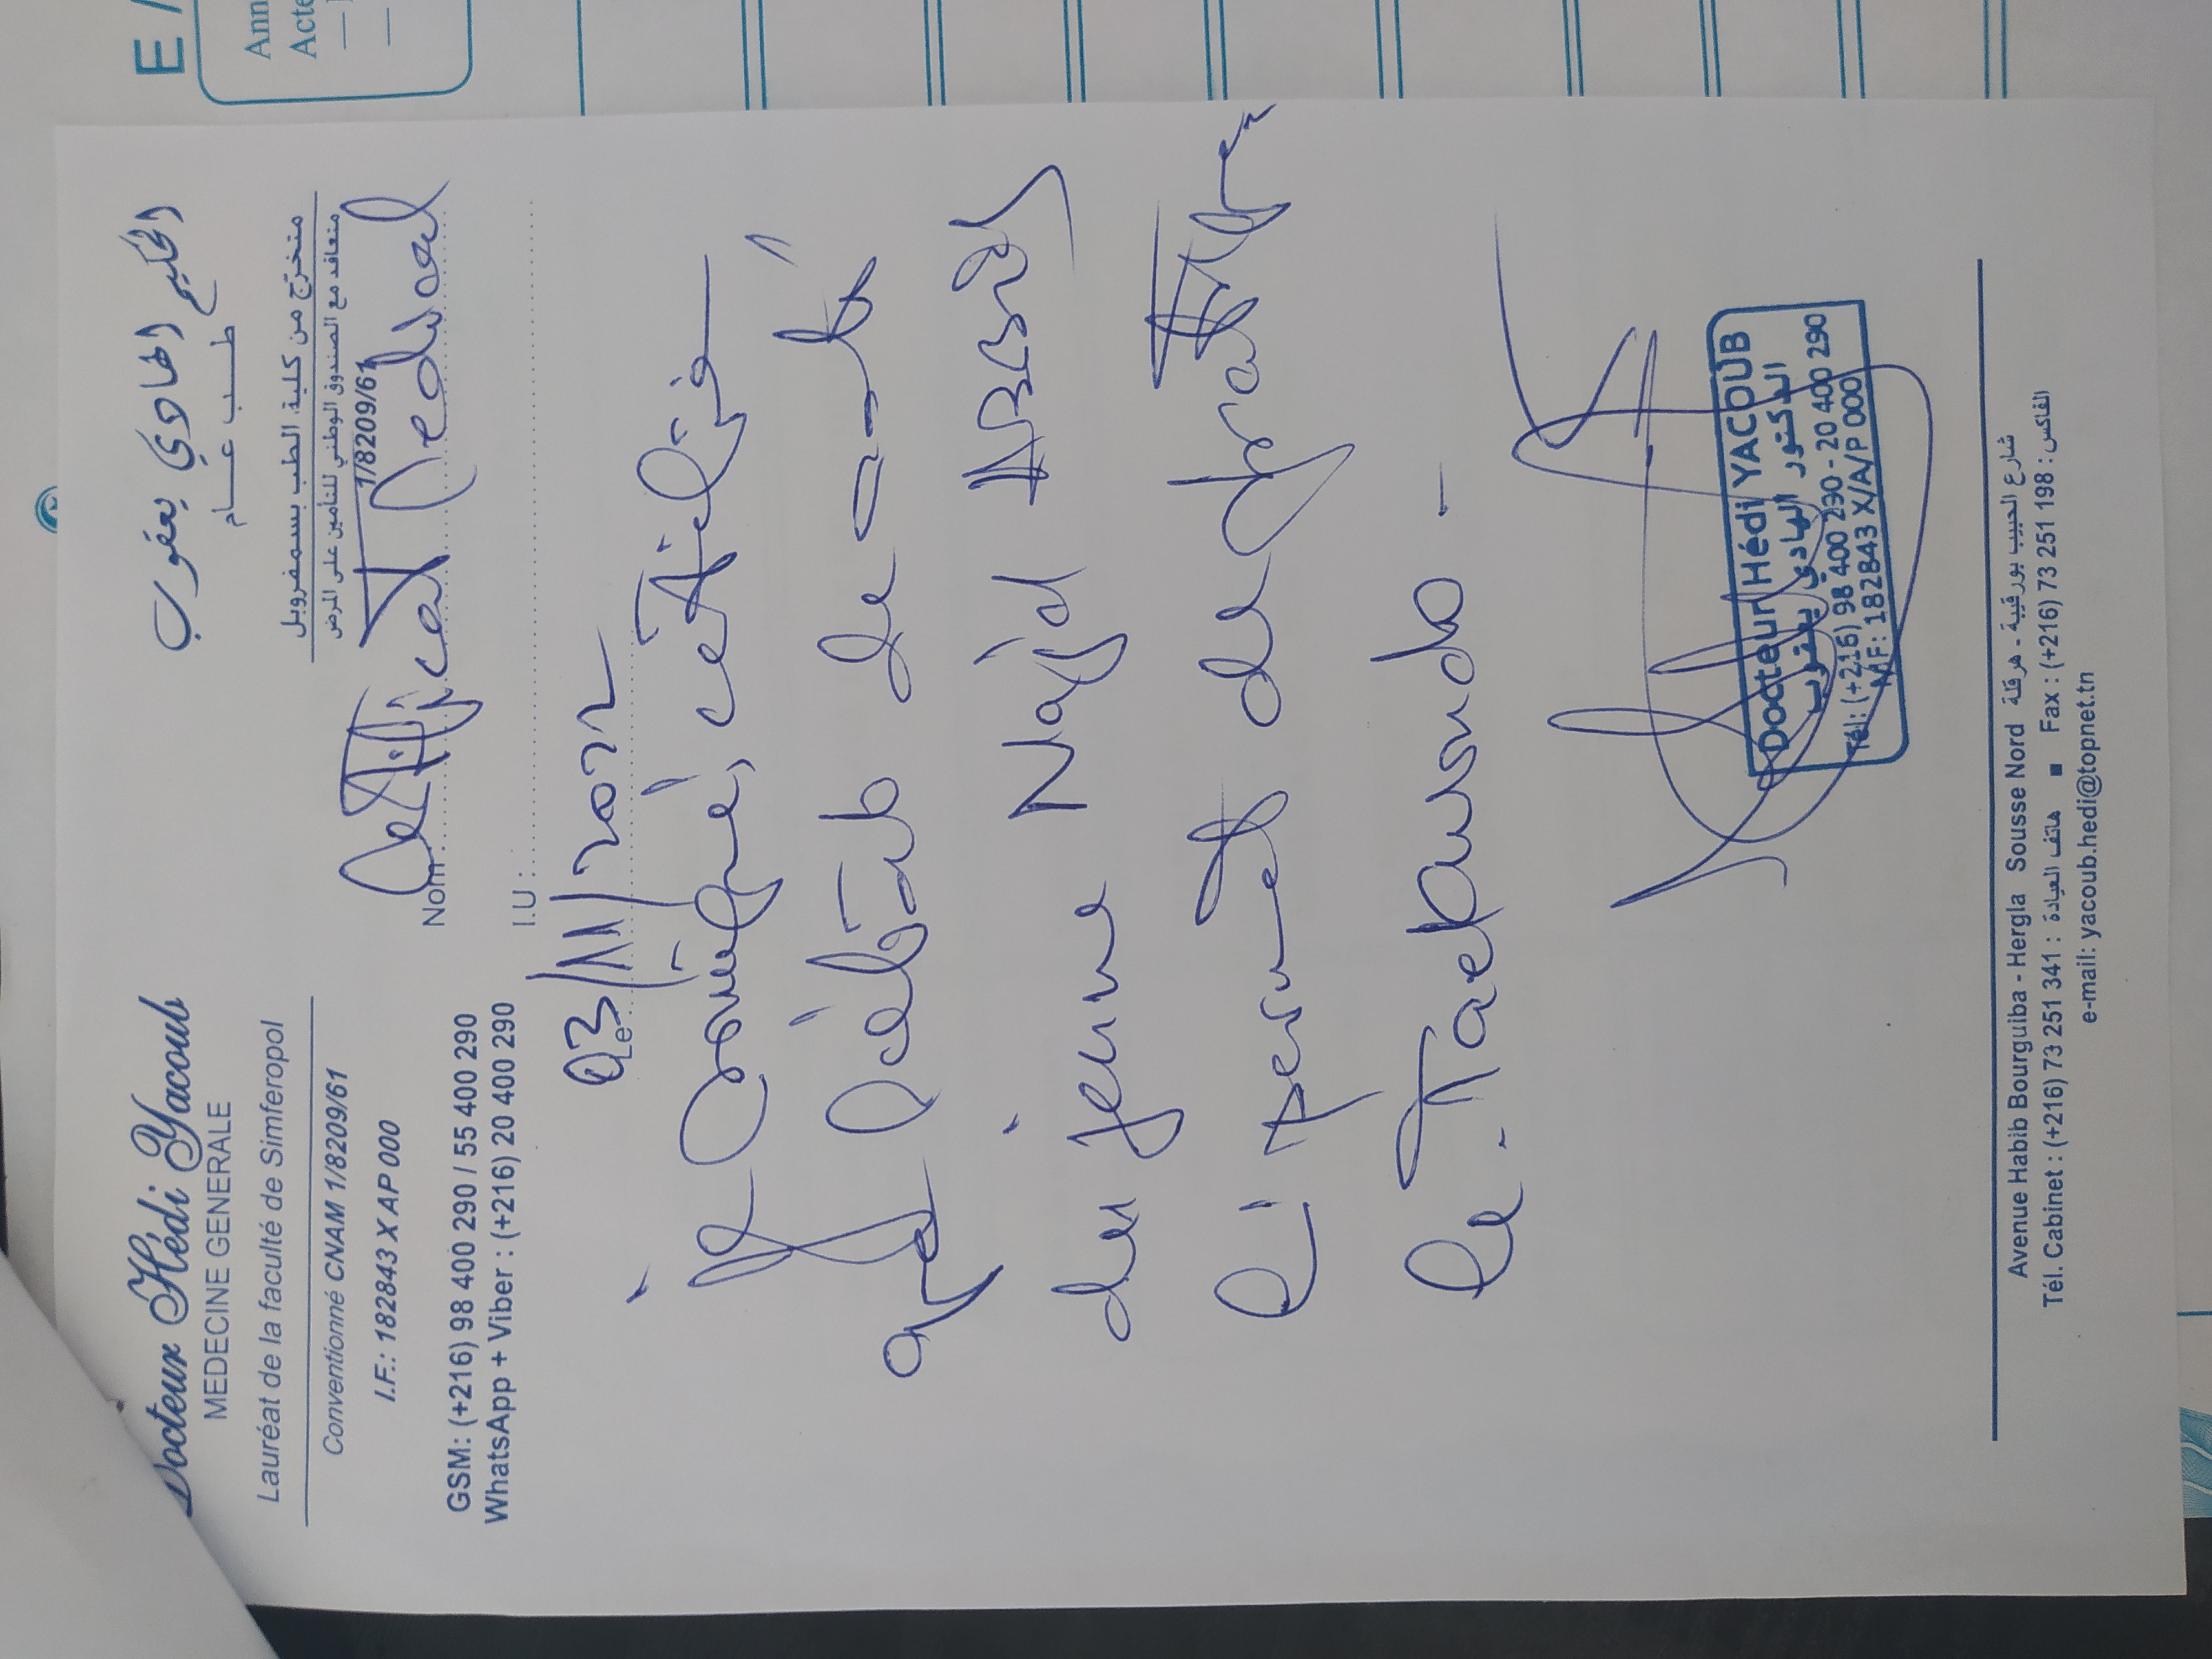 Docteur Hédi Yacoub
MEDECINE GENERALE
Lauréat de la faculté de Simferopol
Conventionné CNAM 1/8209/61
I.F.: 182843 X AP 000
GSM: (+216) 98 400 290 / 55 400 290
WhatsApp + Viber : (+216) 20 400 290
الحكيم الهادي يعقوب
طب عام
متخرّج من كلية الطب بسمفروبل
متعاقد مع الصندوق الوطني للتأمين على المرض
1/8209/61
Nom: Certificat Medical
I.U :
Le 03/11/2022
Je soussigné, certifie
que l'état de santé
du jeune Najd
lui permet de pratiquer
le Taekwondo -
Docteur Hédi YACOUB
الدكتور الهادي يعقوب
Tél: (+216) 98 400 290 - 20 400 290
MF: 182843 X/A/P 000
Avenue Habib Bourguiba - Hergla Sousse Nord شارع الحبيب بورقيبة - هرقلة
Tél. Cabinet : (+216) 73 251 341 : هاتف العيادة ■ Fax : (+216) 73 251 198 : الفاكس
e-mail: yacoub.hedi@topnet.tn
E /
Ann
Acte